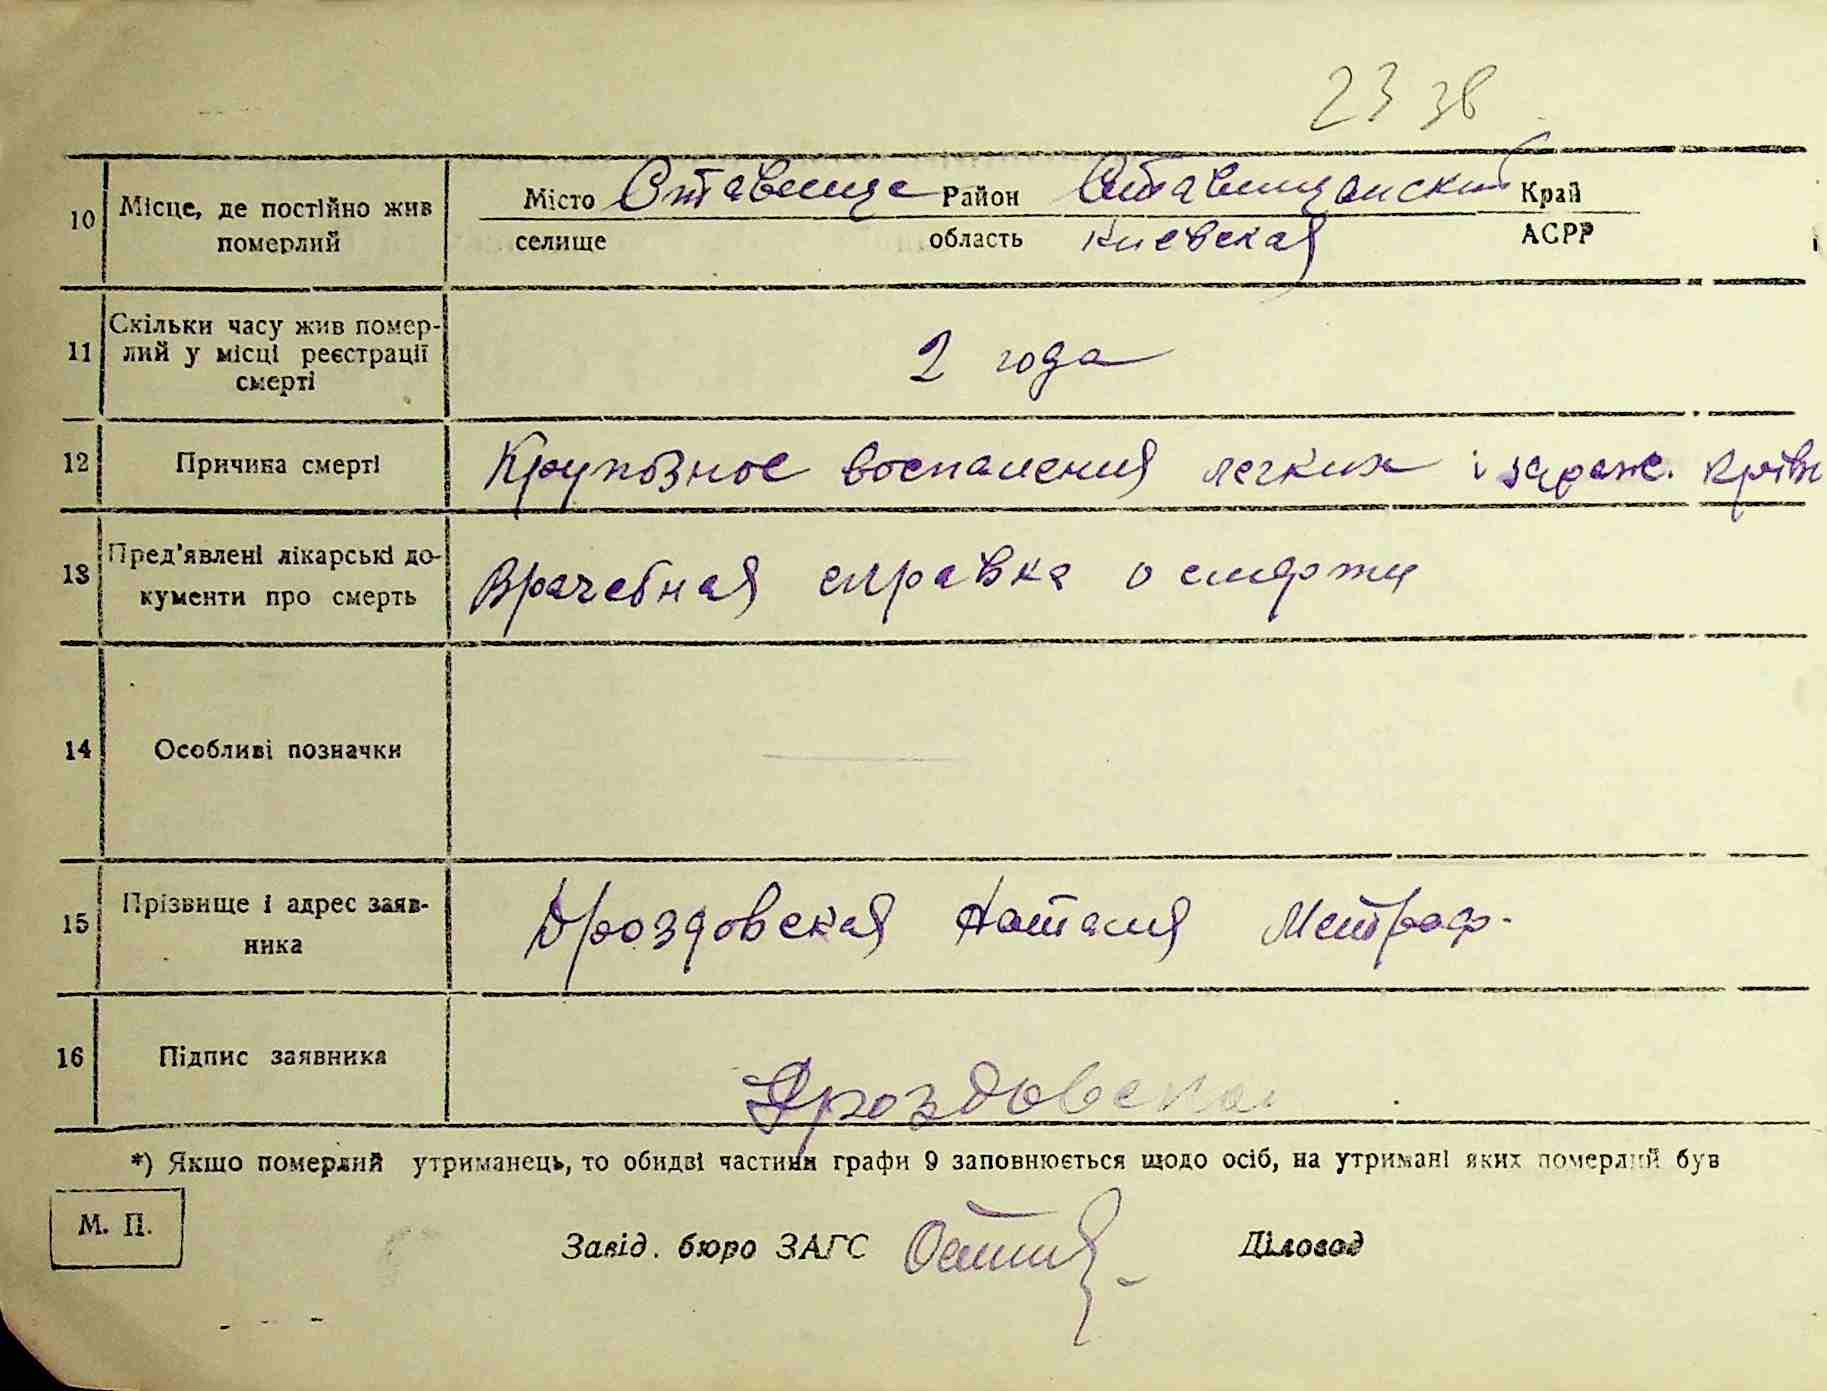 23 38
10 Місце, де постійно жив померлий
Місто Ставище Район Ставищанский Край
селище область Киевская АСРР
11 Скільки часу жив помер-
лий у місці реєстрації
смерті
2 года
12 Причина смерті
Крупозное воспаления легких і зараж. крівн
13 Пред'явлені лікарські до-
кументи про смерть
Врачебная справка о смерти
14 Особливі позначки
15 Прізвище і адрес заяв-
ника
Дроздовская Наталия Митроф.
16 Підпис заявника
Дроздовская
*) Якщо померлий утриманець, то обидві частини графи 9 заповнюється щодо осіб, на утримані яких померлий був
М. П.
Завід. бюро ЗАГС
Діловод